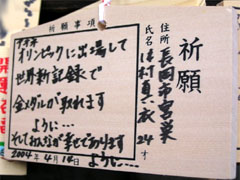 祈願
祈願事項
アテネ
オリンピックに出場して
世界新記録で
金メダルが取れます
ように…
そしてみんなが幸せであります
ように…
2004年4月14日
住所 長岡市宮栄
氏名 村真 24才